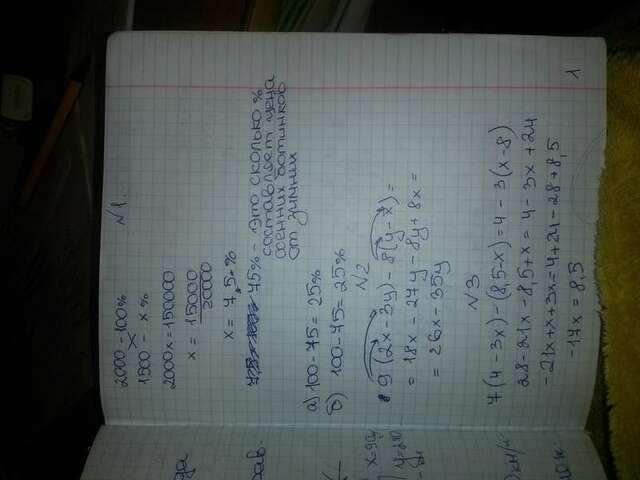 №1.
2000 - 100%
1500 - x%
2000x = 150000
x = 15000/2000
x = 7,5 %
75% - это сколько %
составляет цена
осенних ботинков
от зимних
а) 100-75 = 25%
б) 100-75 = 25%
№2
9(2x-3y)-8(y-x)=
= 18x - 27y - 8y + 8x =
= 26x - 35y
№3
7(4-3x)-(8,5-x)=4-3(x-8)
28-21x-8,5+x=4-3x+24
-21x+x+3x=4+24-28+8,5
-17x = 8,5
1